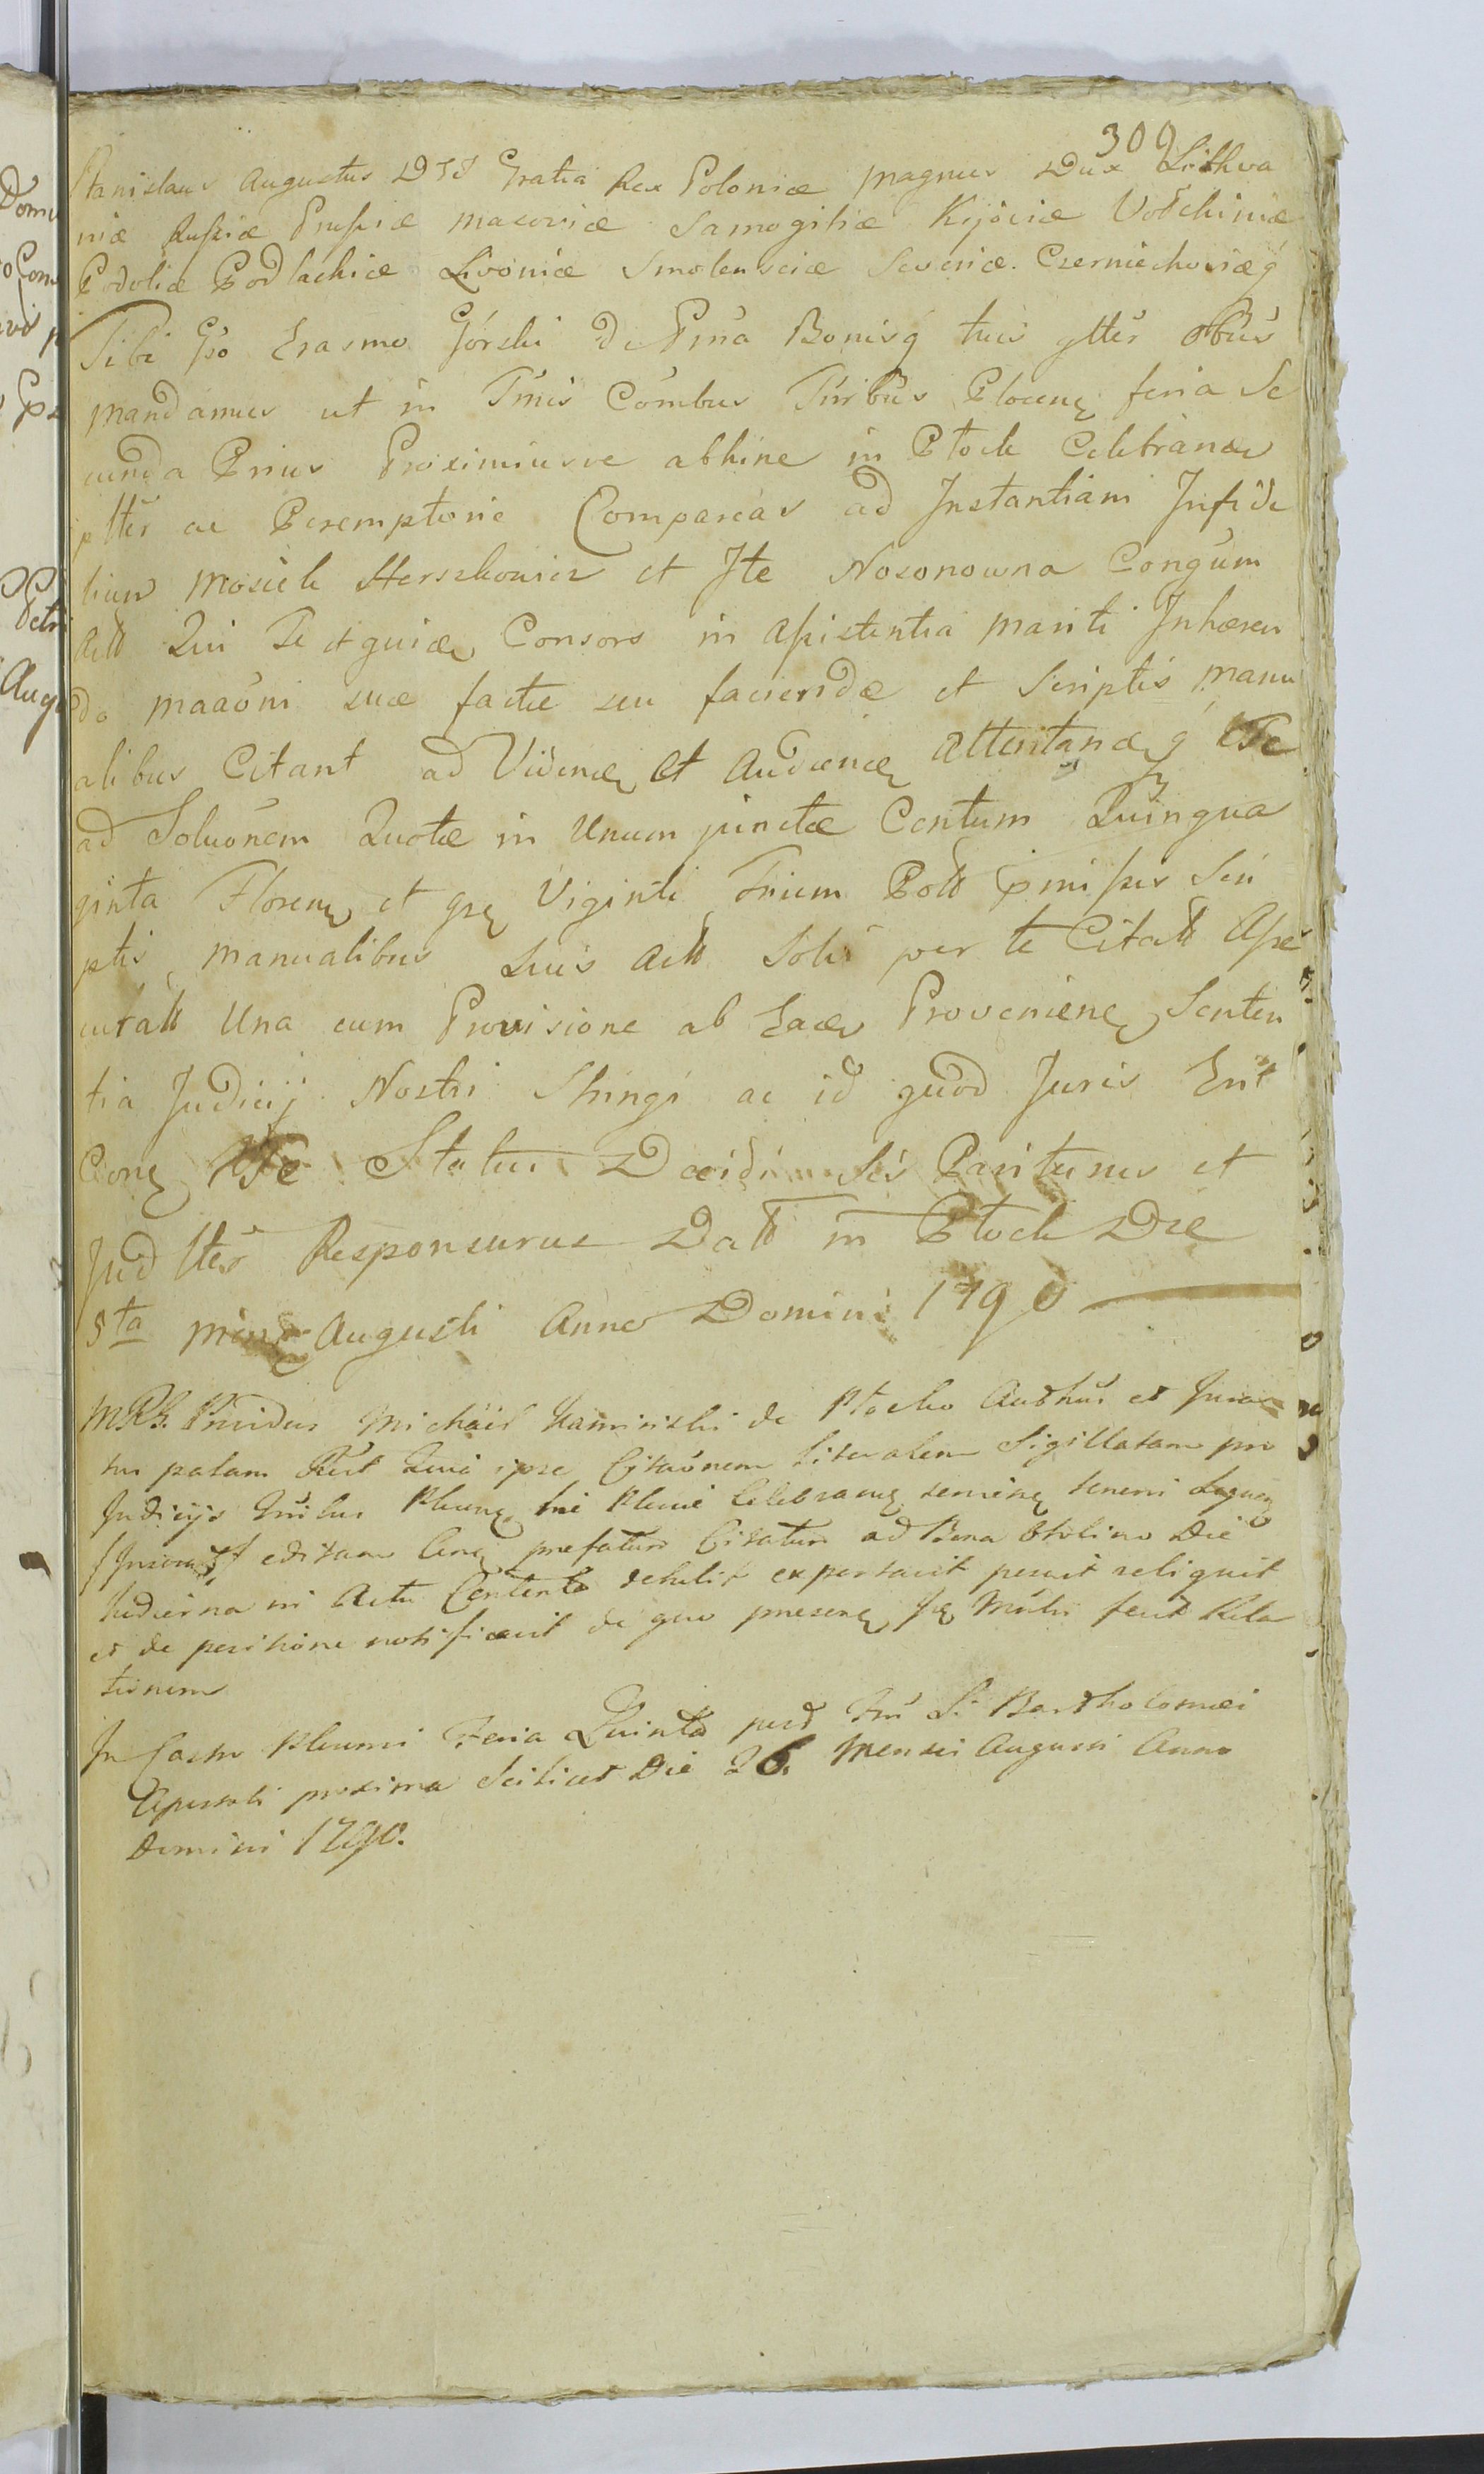 300
Stanislaus Augustus Dei Gratia Rex Poloniæ Magnus Dux Lithva
niæ Rußiæ Prußiæ Masoviæ Samogitiæ Kijoviæ Volhiniæ
Podoliæ Podlachiæ Livoniæ Smolensciæ Severiæ Czerniechoviæq
Tibi Gso Erasmo Górski de Prna Bonisq tuis gtter obus
Mandamus ut in Tmis Combus Trribus Plocen feria Se
cunda Prius Proximiusve abhinc in Płock Celebran
pltter ac Peremptorie Compareas ad Instantiam Infide
lium Mosiek Herszkowicz et Ite Nosonowna Congum
Actt Qui Te et quidem Consors in Aßistentia Mariti Inhæren
do Maaoni suæ factæ seu faciendæ et Scriptis Manu
alibus Citant ad Viden et Audien attentan q Te
ad Soluonem Quotæ in Unum junctæ Centum Quinqua
ginta Floren et grs Viginti Trium Poll Præmißis Scri
ptis Manualibus Suis Actt Solvi per te Citatt Aße
curatt Una cum Provisione ab Eadem Provenien Senten
tia Judicij Nostri Stringi ac id quod Juris Erit
Cone Te Statui Decidi Sis Pariturus et
Judltter Responsurus Datt in Płock Die
5ta Mens Augusti Anno Domini 1790
Providus Michael Kaminski de Płocko Authus et Jura
tus palam Rcit Quia ipse Citaonem Literalem Sigillatam pro
Judicijs Trribus Plocen hic Plociæ Celebran termin tenori Legum
editam Cone prefatum Citatum ad Bona Obolino Die
hodierna in Actu Contento debite exportavit posuit reliquit
et de positione notificavit de quo presens fecit Rela
tionem
In Castro Plocensi Feria Quinta post Fm S. Bartholomæi
Apostoli proxima Scilicet Die 26. Mensis Augusti Anno
Domini 1790.